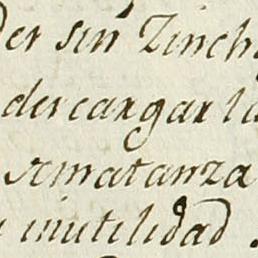 der sin Zinch
descargar la
Amatanza
inutilidad.